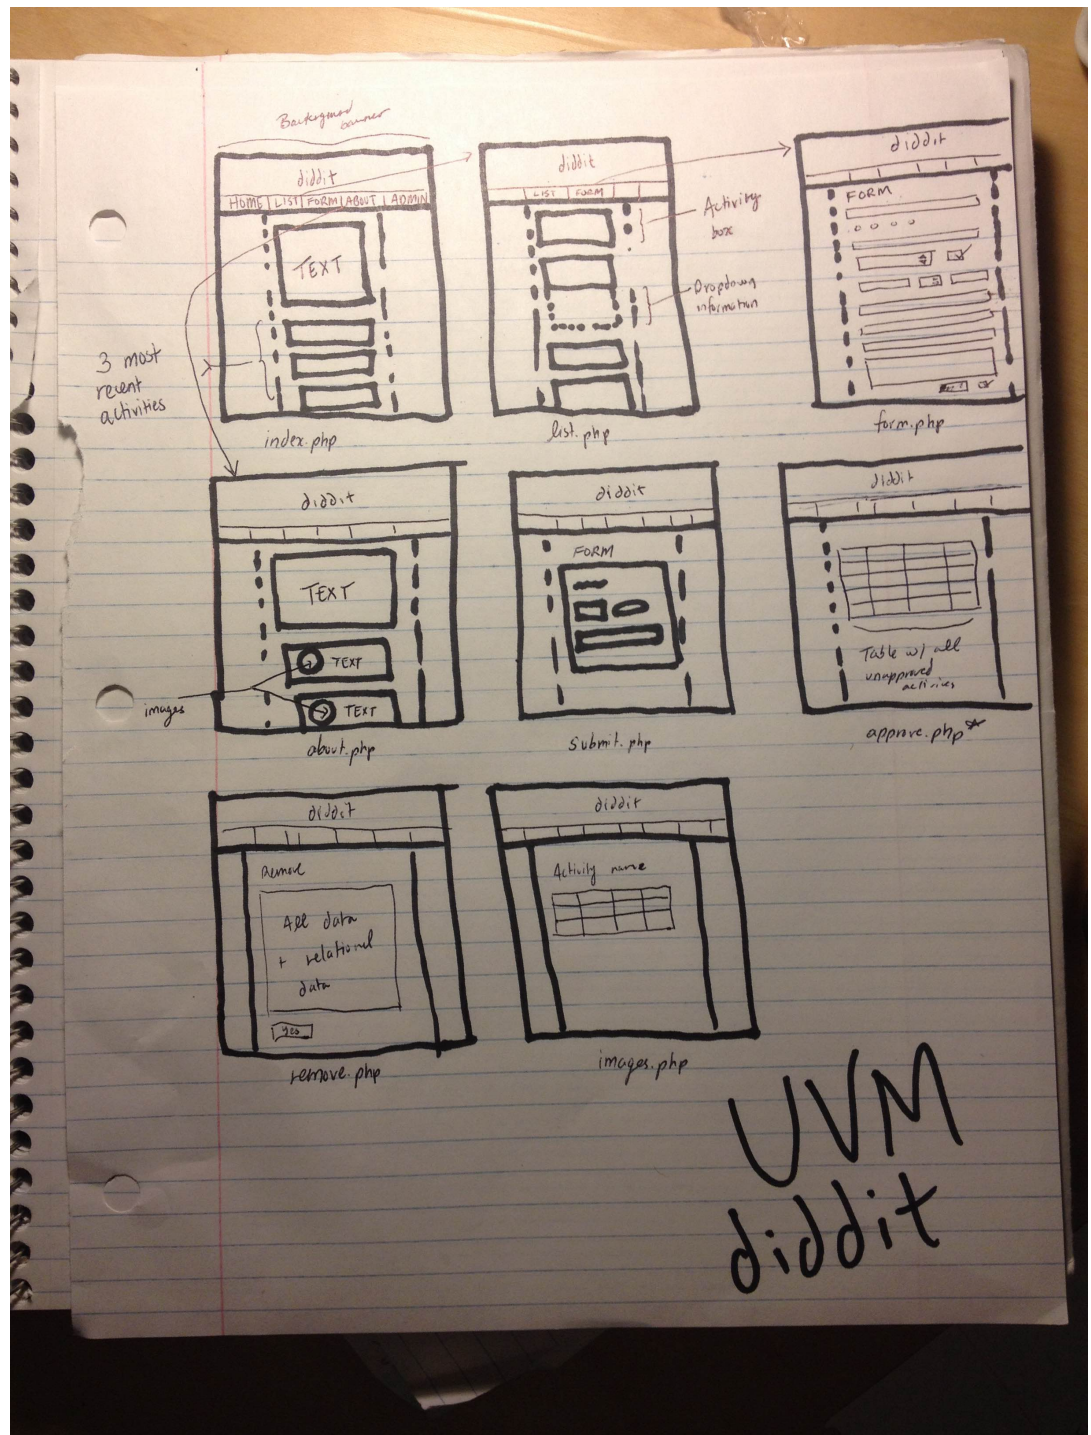 Background
banner
diddit
HOME | LIST | FORM | ABOUT | ADMIN
TEXT
3 most
recent
activities
index.php
diddit
LIST FORM
Activity
box
Dropdown
information
list.php
diddit
FORM
form.php
diddit
TEXT
TEXT
TEXT
images
about.php
diddit
FORM
submit.php
diddit
Table w/ all
unapproved
activities
approve.php*
diddit
Remove
All data
+ relational
data
Yes
remove.php
diddit
Activity name
images.php
UVM
diddit